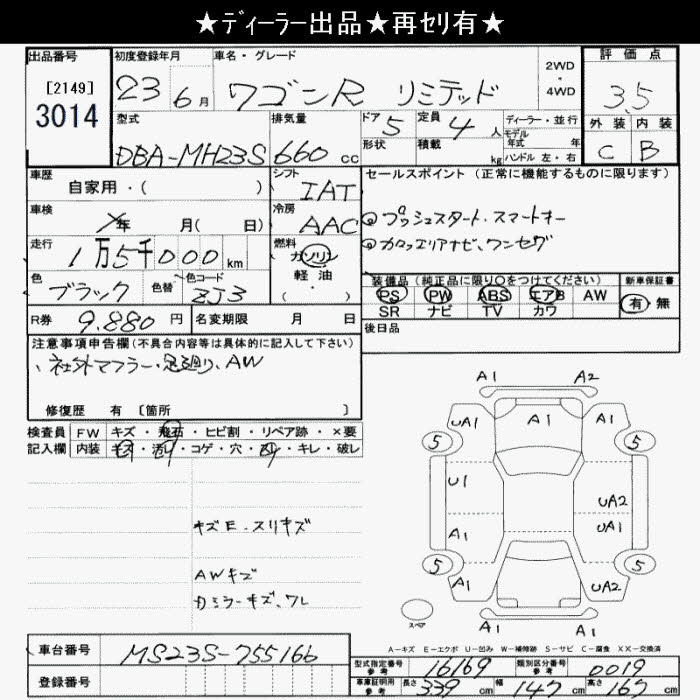 ★ディーラー出品★再セリ有★
出品番号
[2149]
3014
初度登録年月
23 6月
車名・グレード
ワゴンR リミテッド
2WD
・
4WD
評価点
3.5
型式
DBA-MH23S
排気量
660 cc
ドア 5
定員 4 人
形状
積載 kg
ディーラー・並行
モデル
年式 年
ハンドル 左・右
外装 内装
C B
車歴
自家用・( )
シフト
IAT
車検
年 月( 日)
冷房
AAC
走行
1万5千000km
燃料
ガソリン
軽油
・
( )
色
ブラック
色替
色コード
ZJ3
R券 9.880 円
名変期限 月 日
セールスポイント (正常に機能するものに限ります)
◎プッシュスタート・スマートキー
◎カロッツェリアナビ、ワンセグ
装備品 (純正品に限り○をつけてください)
PS PW ABS エアB AW
SR ナビ TV カワ
新車保証書
有・無
後日品
注意事項申告欄(不具合内容等は具体的に記入して下さい)
、社外マフラー・足廻り、AW
修復歴 有 [箇所 ]
検査員
記入欄
FW キズ・飛石・ヒビ割・リペア跡・×要
内装 キズ・汚レ・コゲ・穴・スレ・キレ・破レ
キズE・スリキズ
AWキズ
カミラーキズ、ワレ
A1 A2
UA1 A1 A1
5 5
U1
UA2
A1 UA1
5 5
A1 UA2
A1 A1
スペア
A－キズ E－エクボ U－凹み W－補修跡 S－サビ C－腐食 XX－交換済
車台番号 MS23S-755166
登録番号
型式指定番号
参考
16169
類別区分番号
参考
0019
車庫証明用
参考
長さ 339 cm
幅 147 cm
高さ 165 cm